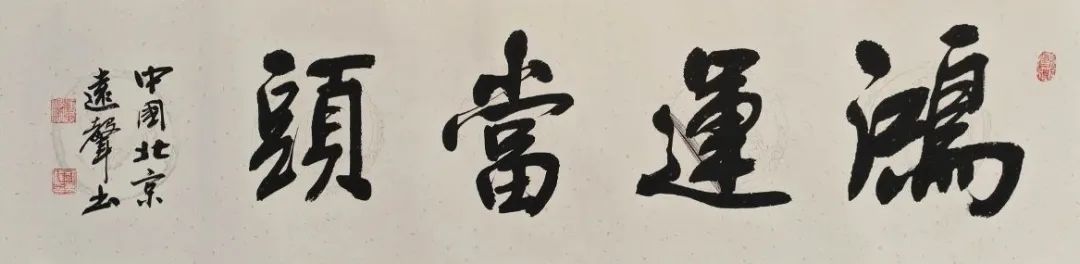 鴻運當頭
中國北京
遠聲书